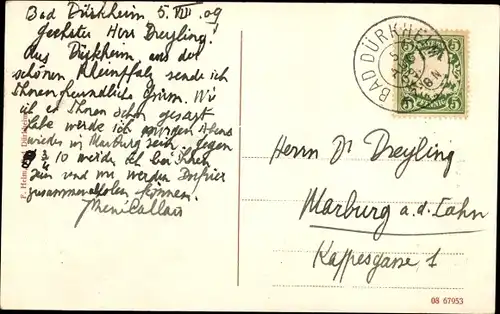 Bad Dürkheim 5. VIII. 09
Geehrter Herr Dreyling!
Aus Dürkheim aus der
schönen Rheinpfalz sende ich
Ihnen freundliche Grüsse. Wie
ich es Ihnen schon gesagt
habe werde ich morgen Abend
wieder in Marburg sein. Gegen
3/4 10 werde ich bei Ihnen
sein und wir werden
zusammen können.
BAD DÜRKHEIM
5
Herrn Dr Dreyling
Marburg a.d. Lahn
Kappesgasse 1
F. Heim, Bad Dürkheim
08 67953